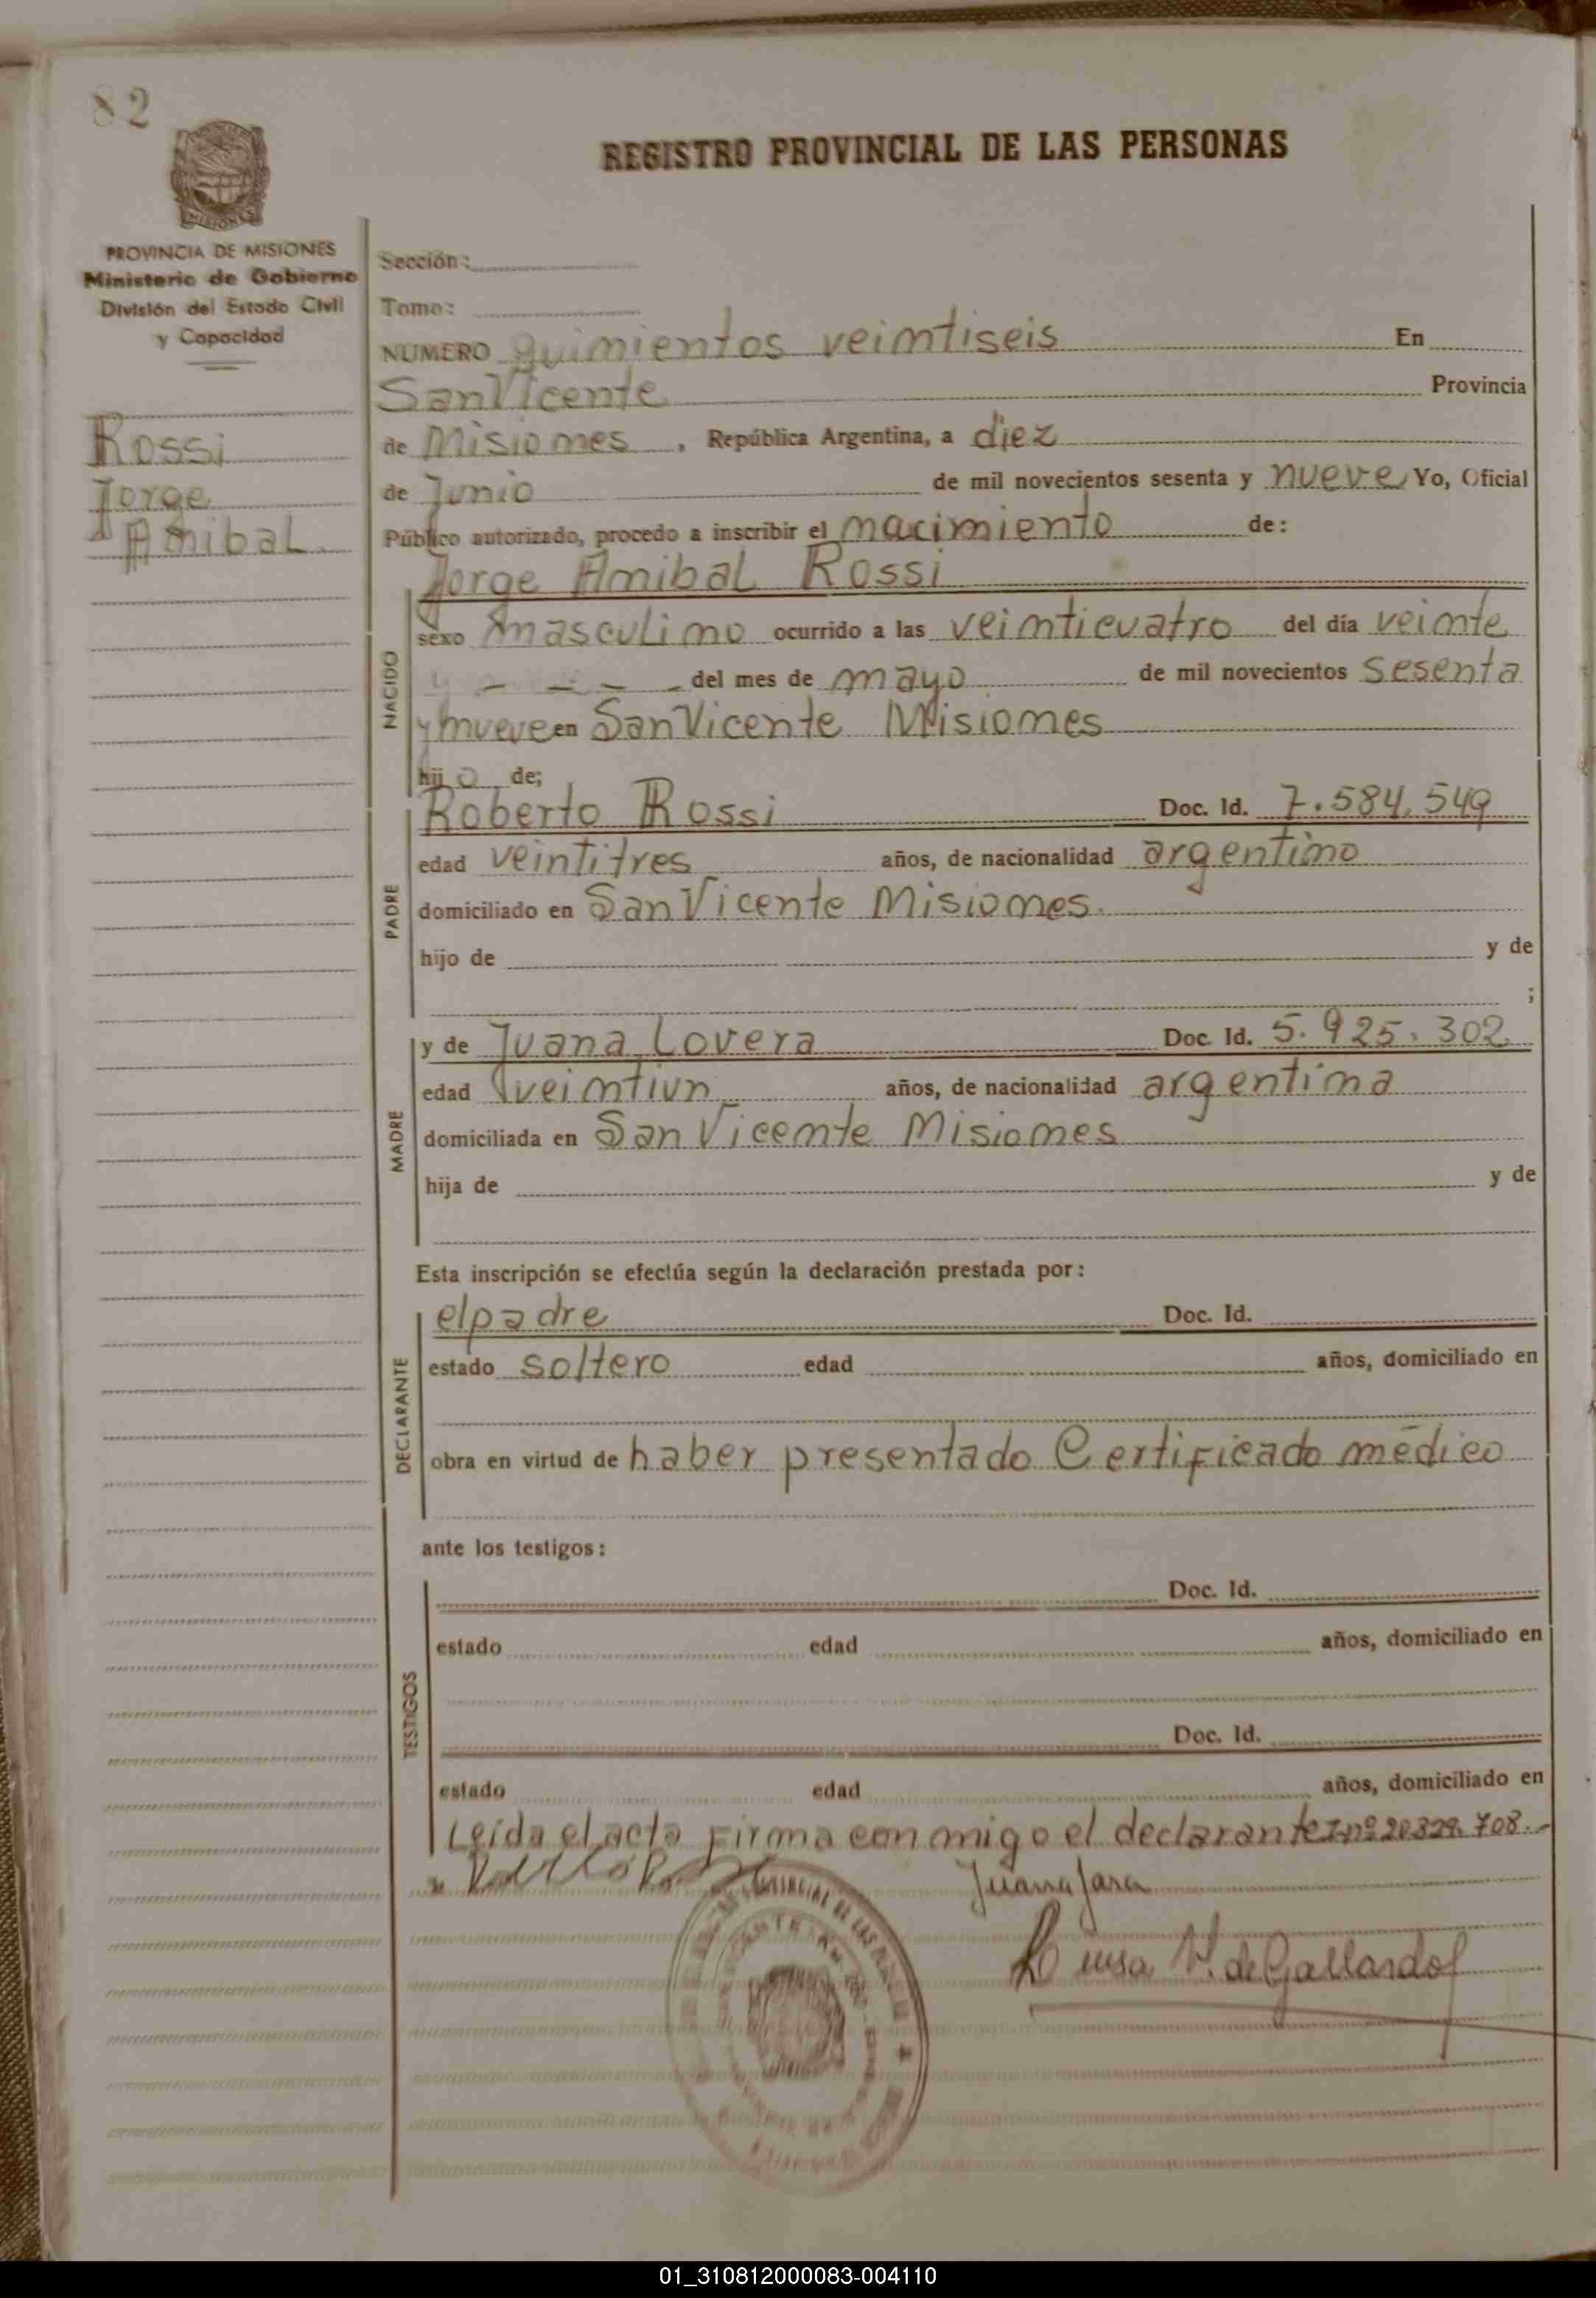 82
MISIONES
REGISTRO PROVINCIAL DE LAS PERSONAS
PROVINCIA DE MISIONES
Ministerio de Gobierno
División del Estado Civil
y Capacidad
Rossi
Jorge
Anibal
Sección:
Tomo:
NUMERO quinientos veintiseis En
San Vicente Provincia
de Misiones, República Argentina, a diez
de Junio de mil novecientos sesenta y nueve Yo, Oficial
Público autorizado, procedo a inscribir el nacimiento de:
Jorge Anibal Rossi
NACIDO
sexo masculino ocurrido a las veinticuatro del día veinte
y - - - del mes de mayo de mil novecientos sesenta
y nueve en San Vicente Misiones
hijo de;
PADRE
Roberto Rossi Doc. Id. 7.584.549
edad veintitres años, de nacionalidad argentino
domiciliado en San Vicente Misiones.
hijo de y de
;
MADRE
y de Juana Lovera Doc. Id. 5.925.302
edad veintiun años, de nacionalidad argentina
domiciliada en San Vicente Misiones
hija de y de
Esta inscripción se efectúa según la declaración prestada por:
DECLARANTE
el padre Doc. Id.
estado soltero edad años, domiciliado en
obra en virtud de haber presentado Certificado médico
ante los testigos:
TESTIGOS
Doc. Id.
estado edad años, domiciliado en
Doc. Id.
estado edad años, domiciliado en
Leida el acta firma conmigo el declarante nº 20.329.708.-
Juana Jara
Luisa V. de Gallardo
01_310812000083-004110